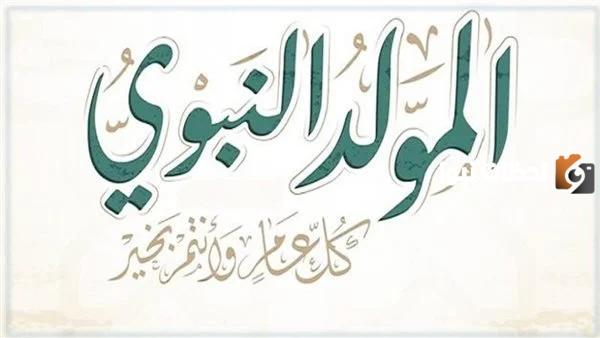 المَوْلِدُ النَّبَوْيُّ
كُلُّ عَامٍ وَأَنْتُمْ بِخَيْر